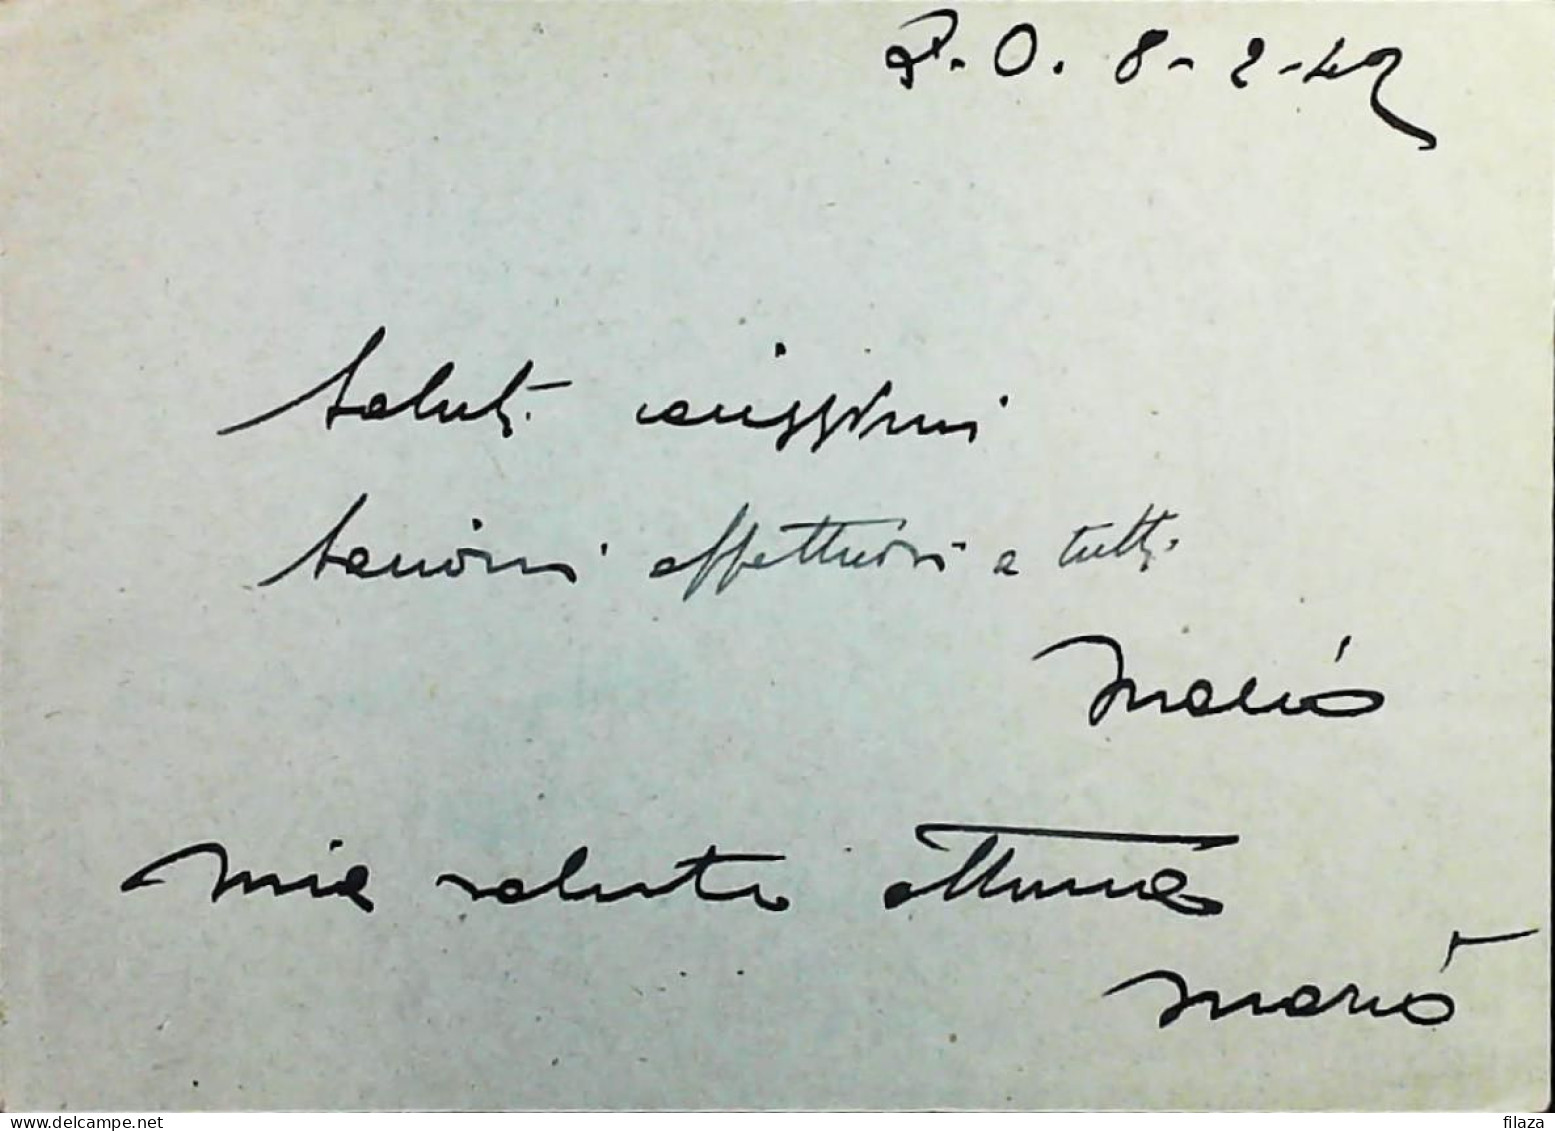 P.O. 8-2-42
Saluti carissimi
bacioni affettuosi a tutti
Mario
Mia salute ottima
Mario
www.delcampe.net
filaza